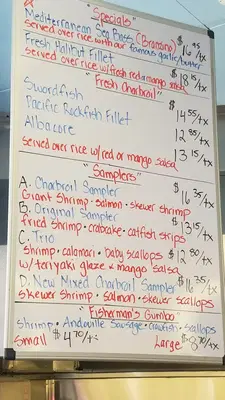 "Specials"
Mediterranean Sea Bass (Branzino) $16.95/tx
Served over rice with our famous garlic/butter
Fresh Halibut Fillet $18.15/tx
Served over rice w/fresh red or mango salsa
"Fresh Charbroil"
Swordfish $14.55/tx
Pacific Rockfish Fillet $12.85/tx
Albacore $13.15/tx
Served over rice w/red or mango salsa
"Samplers"
A. Charbroil Sampler $16.35/tx
Giant shrimp • salmon • skewer shrimp
B. Original Sampler $13.15/tx
fried shrimp • crabcake • catfish strips
C. Trio $12.80/tx
shrimp • calamari • baby scallops
w/teriyaki glaze & mango salsa
D. New Mixed Charbroil Sampler $16.35/tx
skewer shrimp • salmon • skewer scallops
"Fisherman's Gumbo"
Shrimp • Andouille Sausage • Crawfish • Scallops
Small $4.70/tx Large $8.70/tx